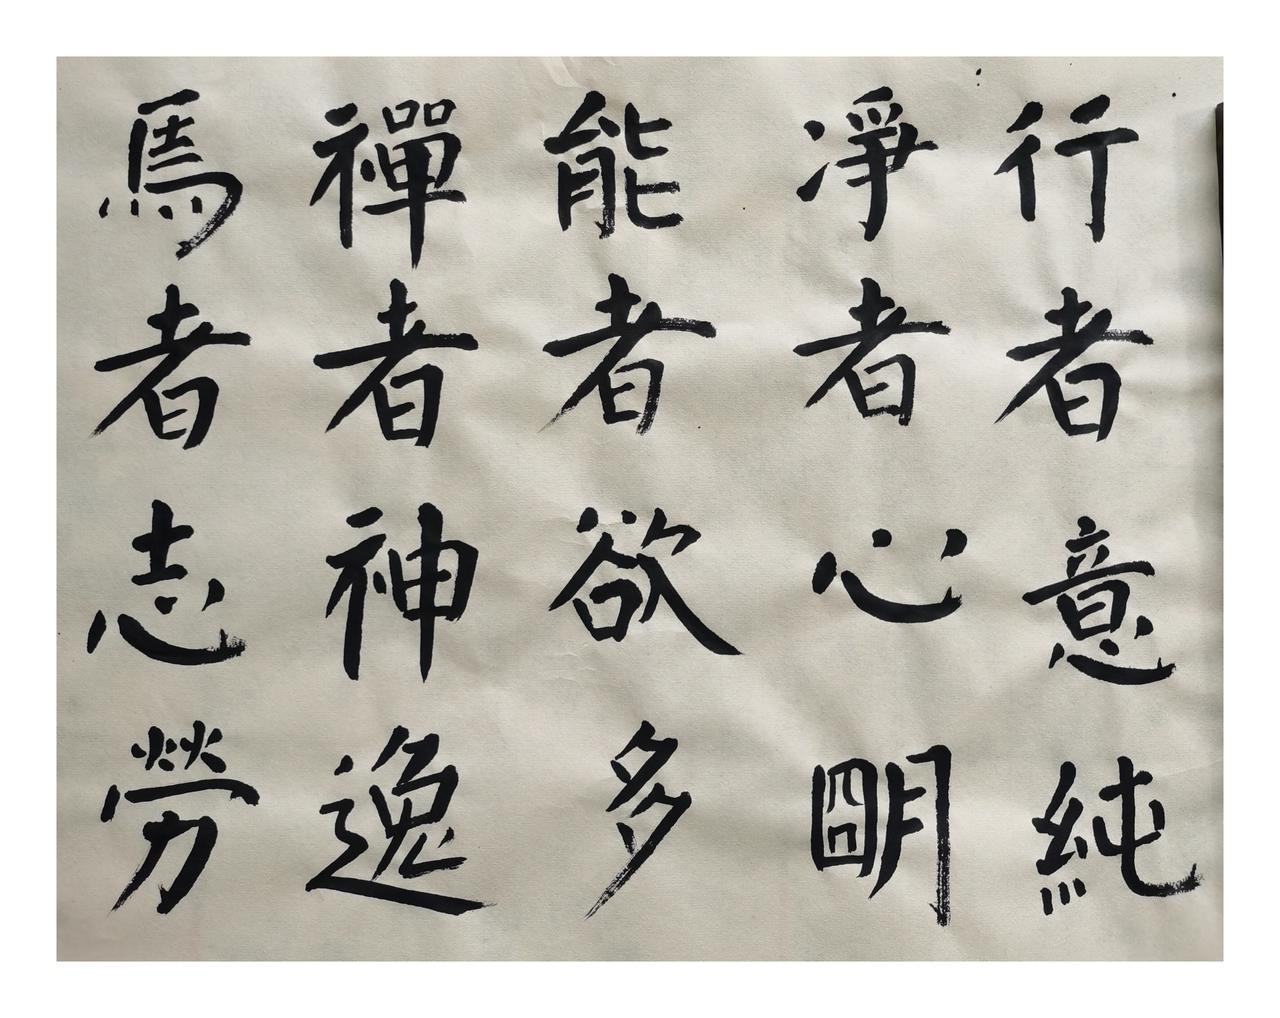 行者意純
凈者心朙
能者欲多
禪者神逸
馬者志勞